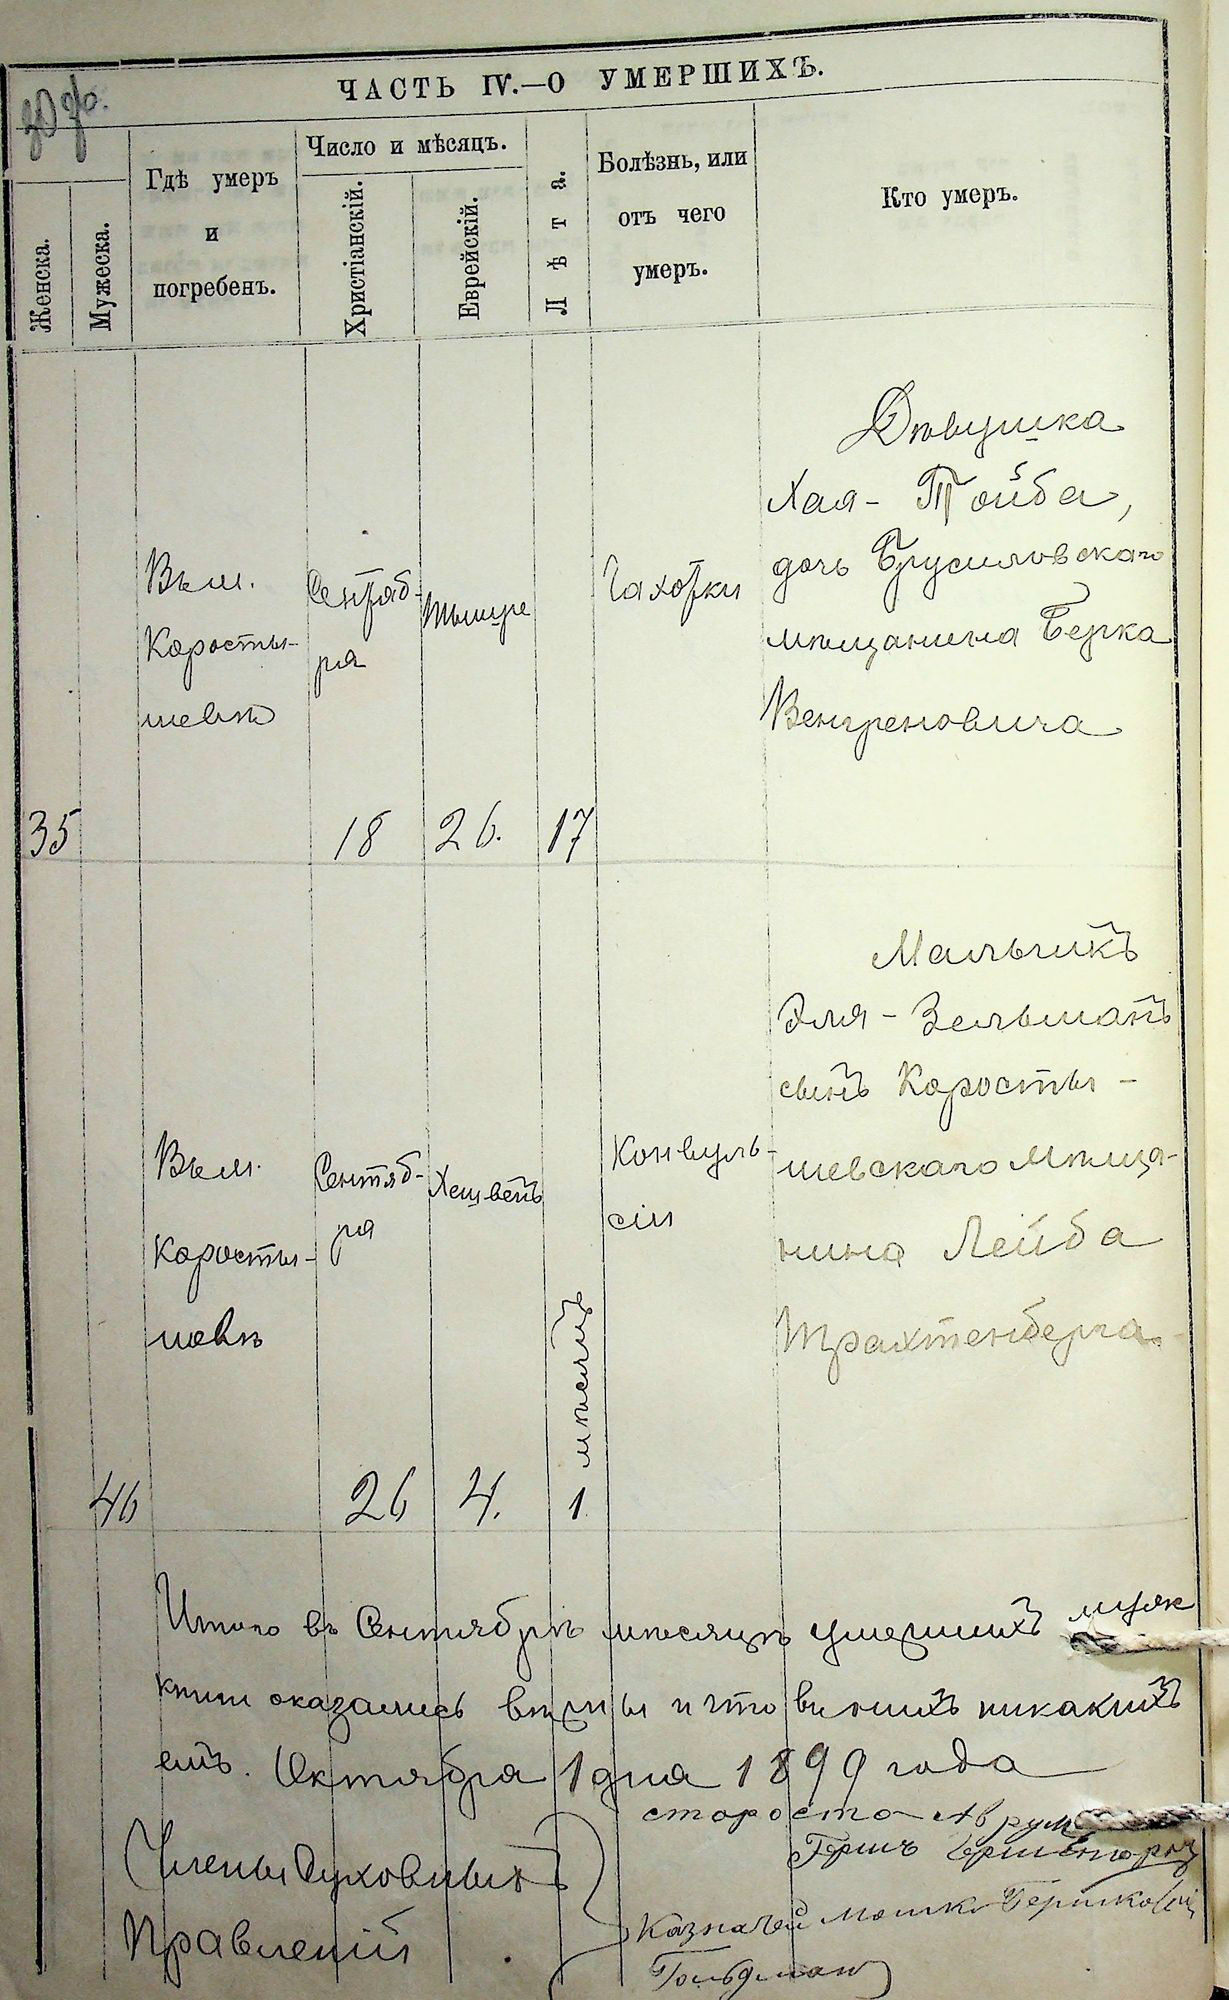 ЧАСТЬ IV.—О УМЕРШИХЪ.
Женска.
Мужеска.
Гдѣ умеръ
и
погребенъ.
Число и мѣсяцъ.
Христіанскій.
Еврейскій.
Лѣта.
Болѣзнь, или
отъ чего
умеръ.
Кто умеръ.
35
Въ м.
Коросты-
шевѣ
Сентяб-
ря
18
Тышре
26.
17
Чахотки
Дѣвушка
Хая-Тойба,
дочь Брусиловскаго
мѣщанина Берка
Венгреновича
46
Въ м.
Коросты-
шевѣ
Сентяб-
ря
26
Хешвенъ
4.
1 мѣсяцъ
Конвуль-
сіи
Мальчикъ
Эля-Зельманъ
сынъ Коросты-
шевскаго мѣща-
нина Лейба
Трахтенберга
Итого въ Сентябрѣ мѣсяцѣ умершихъ муж
книги оказались вѣрны и что въ нихъ никакихъ
емъ. Октября 1 дня 1899 года
староста Аврум
Члены Духовныхъ
Правленій
Гершъ
Казначей Мошко Бершкович
Гольдман